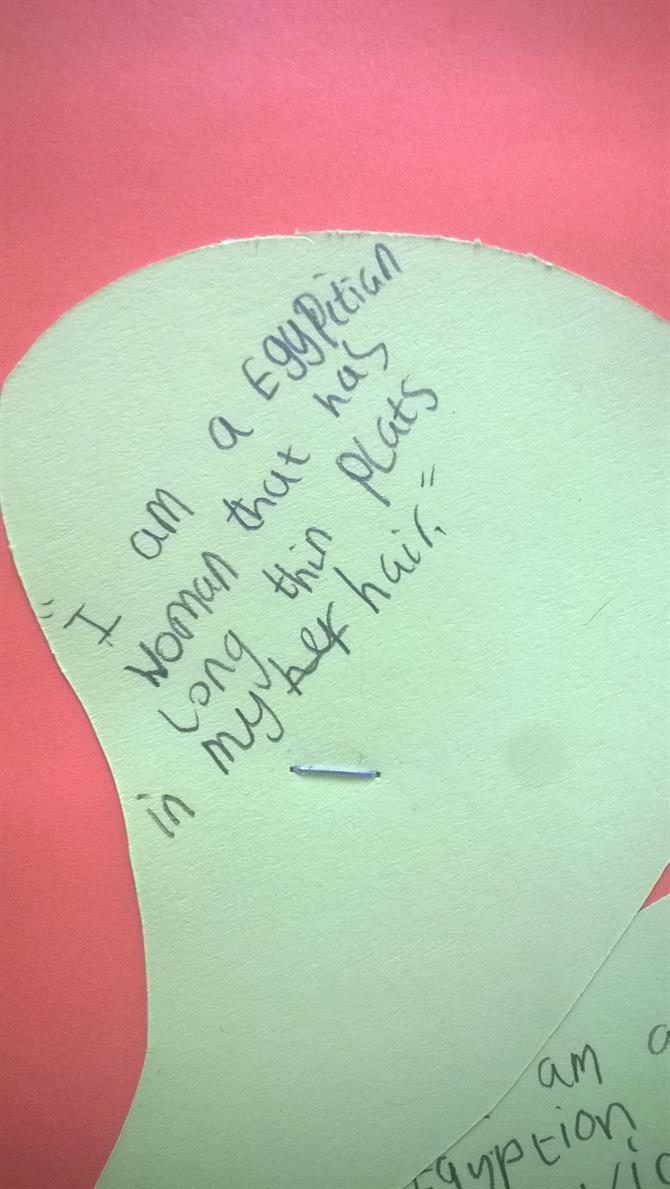 "I am a Egypitian
Woman that has
long thin plats
in my her hair."
am a
Egyption